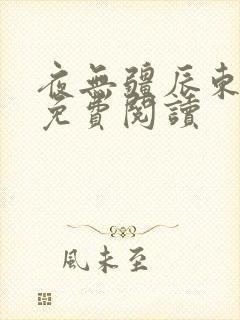 夜無疆辰東
免費閱讀
風未至